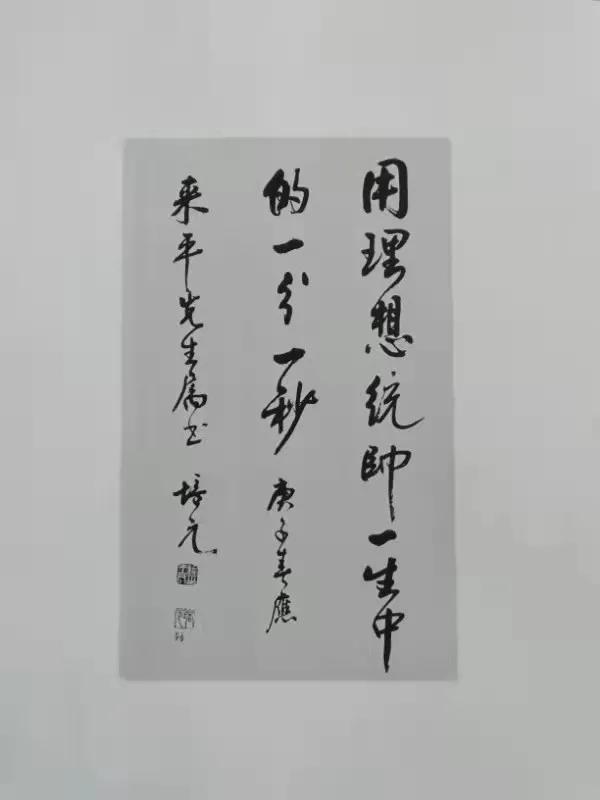 用理想統帥一生中
的一分一秒 庚子春應
来平先生属书 培元